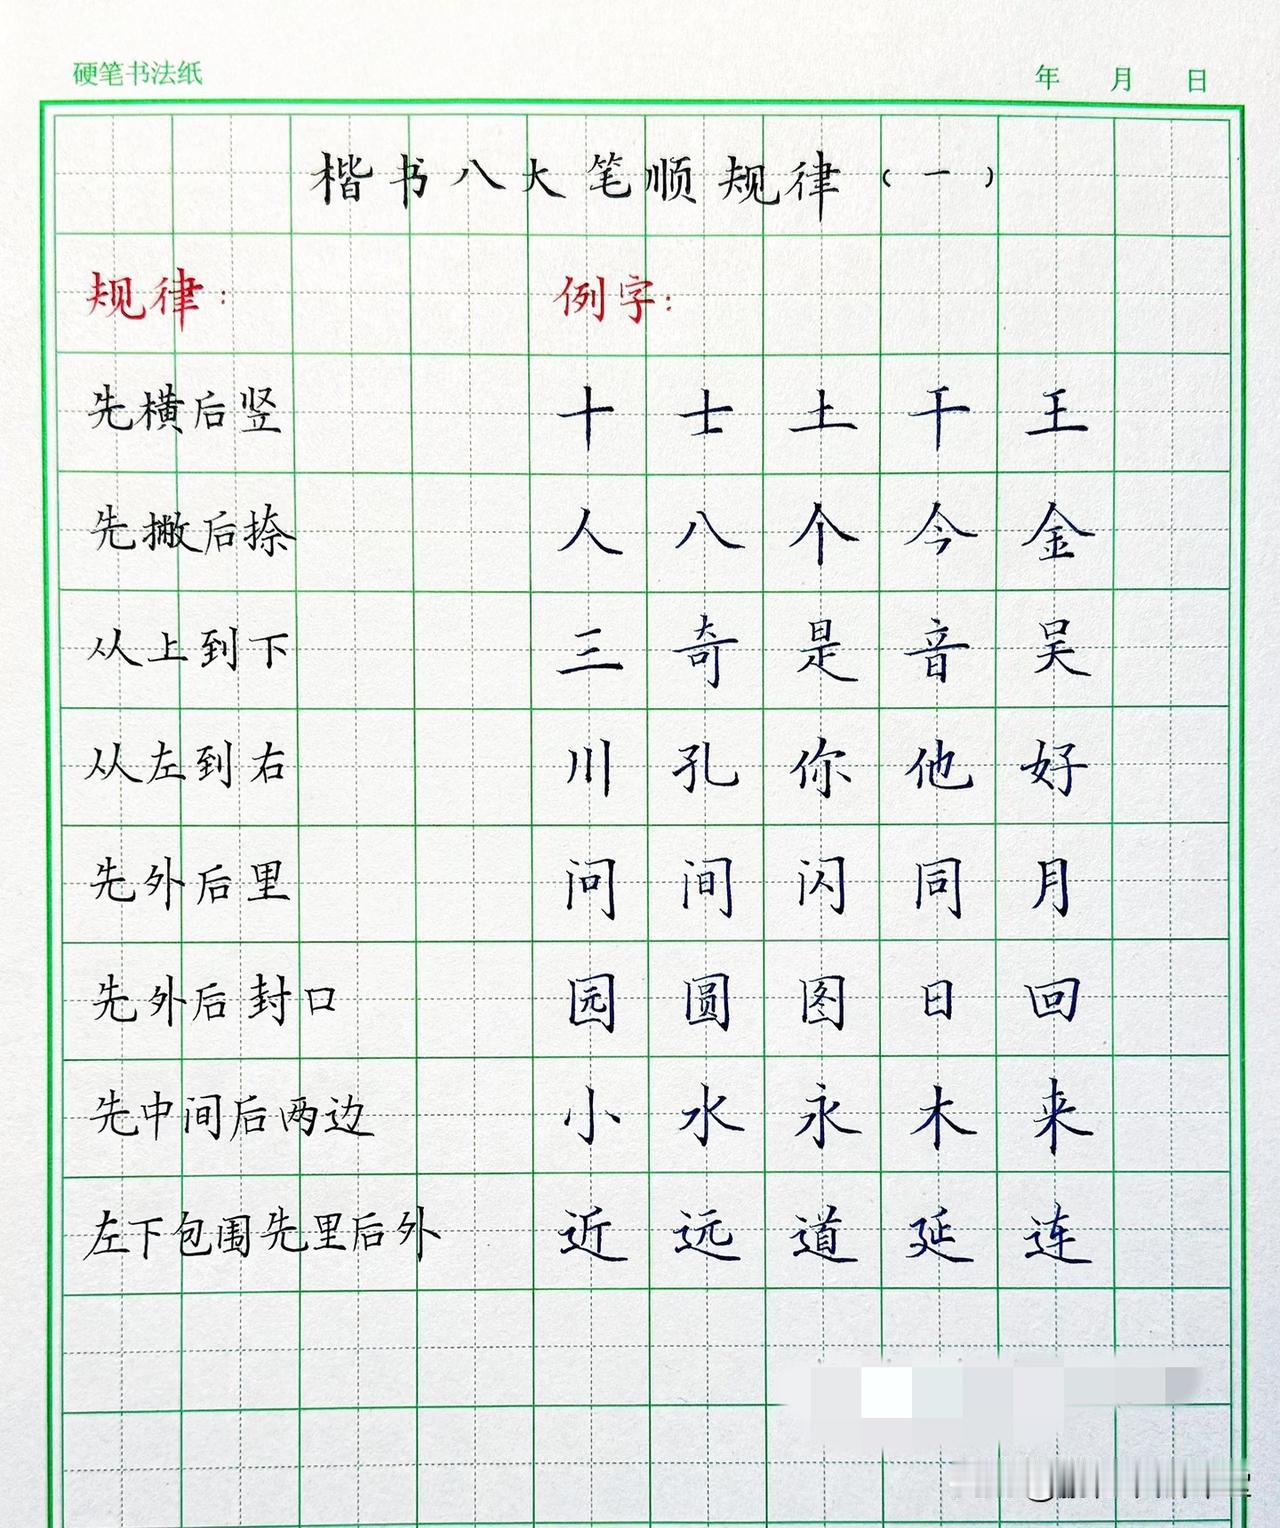 硬笔书法纸 年 月 日
楷书八大笔顺规律（一）
规律： 例字：
先横后竖 十 士 土 干 王
先撇后捺 人 八 个 今 金
从上到下 三 奇 是 音 吴
从左到右 川 孔 你 他 好
先外后里 问 间 闪 同 月
先外后封口 园 圆 图 日 回
先中间后两边 小 水 永 木 来
左下包围先里后外 近 远 道 延 连